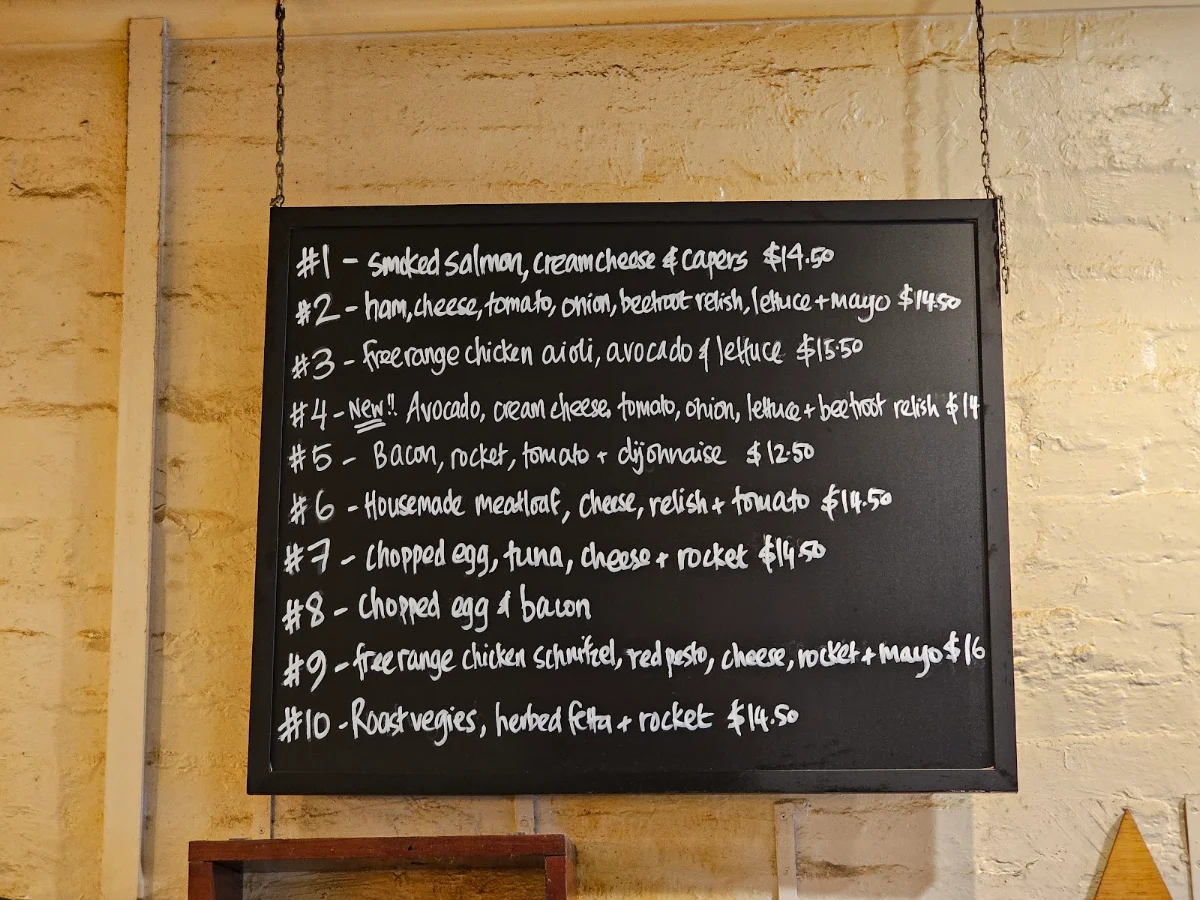 #1 - smoked salmon, creamcheese & capers $14.50
#2 - ham, cheese, tomato, onion, beetroot relish, lettuce + mayo $14.50
#3 - freerange chicken aioli, avocado & lettuce $15.50
#4 - New!! Avocado, cream cheese, tomato, onion, lettuce + beetroot relish $14
#5 - Bacon, rocket, tomato + dijonnaise $12.50
#6 - Housemade meatloaf, cheese, relish + tomato $14.50
#7 - Chopped egg, tuna, cheese + rocket $14.50
#8 - Chopped egg & bacon
#9 - freerange chicken schnitzel, red pesto, cheese, rocket + mayo $16
#10 - Roast vegies, herbed fetta + rocket $14.50